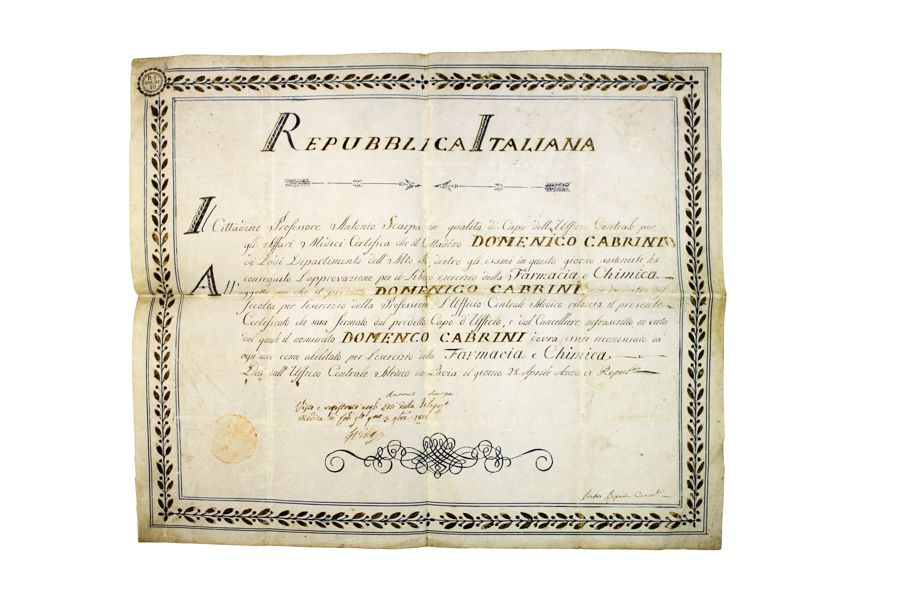 REPUBBLICA ITALIANA
Il Cittadino Professore Antonio Scarpa in qualità di Capo dell'Uffizio Centrale per
gli Affari Medici Certifica che il Cittadino DOMENICO CABRINI
di Lodi Dipartimento dell'Alto Pò dietro gli esami in questo giorno sostenuti ha
conseguito l'approvazione per il libero esercizio della Farmacia e Chimica
All' oggetto poi che il DOMENICO CABRINI
facolta per l'esercizio della Professione l'Uffizio Centrale Medico rilascia il presente
Certificato che sarà firmato dal predetto Capo d'Uffizio, e dal Cancelliere infrascritto in virtù
del quale il nominato DOMENCO CABRINI dovrà essere riconosciuto da
ogn'uno come abilitato per l'esercizio della Farmacia e Chimica
Dat. dall'Uffizio Centrale Medico in Pavia il giorno 28 Aprile Anno
Antonio Scarpa
Visto e registrato negli Atti della
Medica